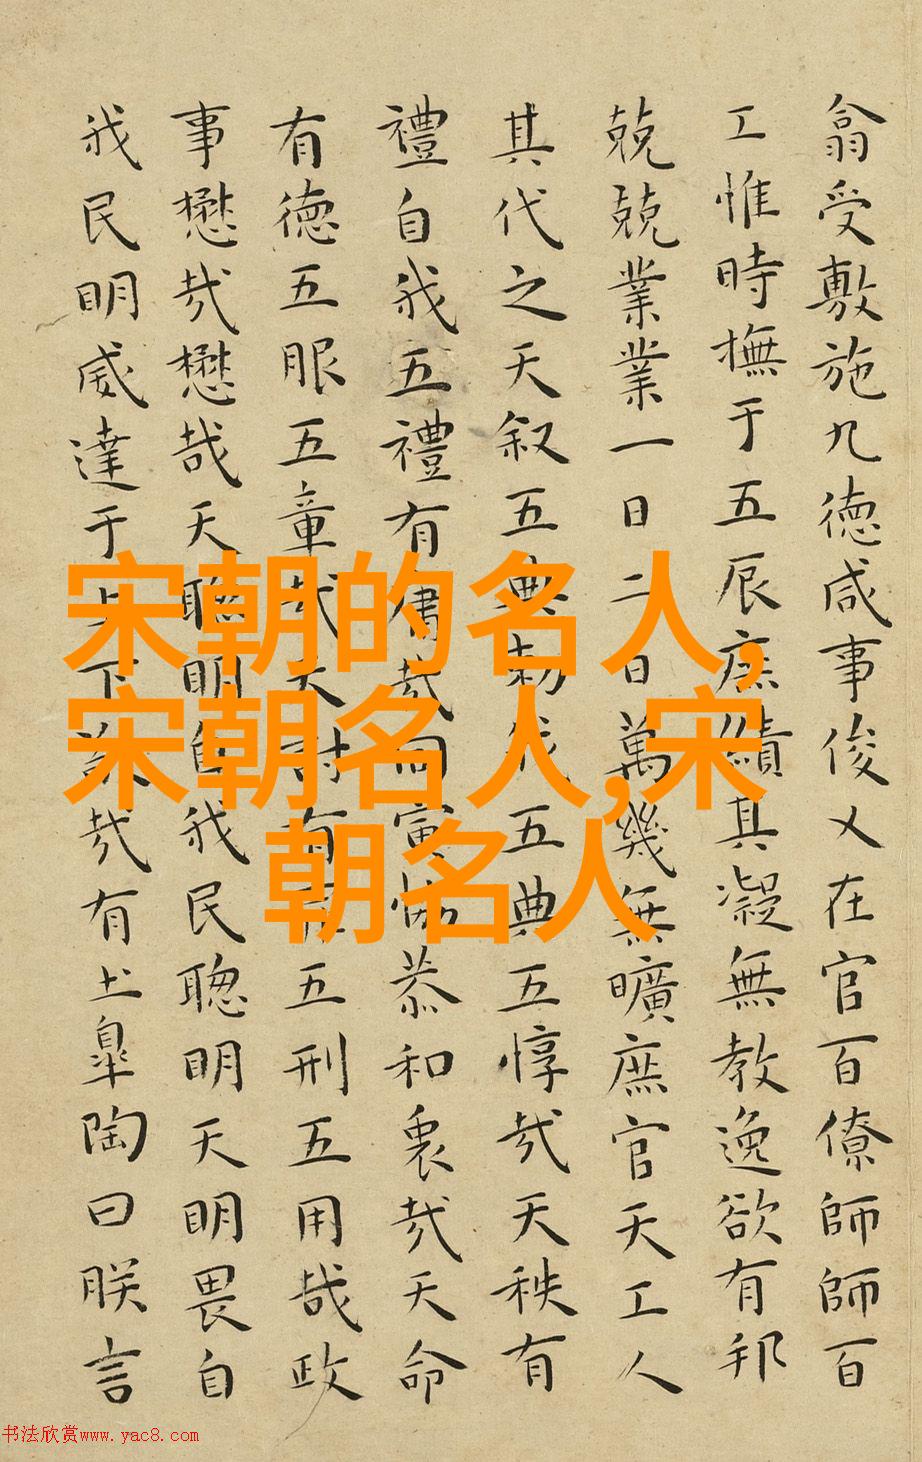 翕受敷施九德咸事俊乂在官百僚師師百
工惟時撫于五辰庶績其凝無教逸欲有邦
兢兢業業一日二日萬幾無曠庶官天工人
其代之天叙五典勑我五典五惇哉天秩有
禮自我五禮有庸哉同寅恊恭和衷哉天命
有德五服五章哉天討有五刑五用哉政
事懋哉懋哉天聰明自我民聰明天明畏自
我民明威達于上下哉有土皋陶曰朕言
宋朝的名人,
宋朝名人,宋
朝名人
书法欣赏www.yac8.com